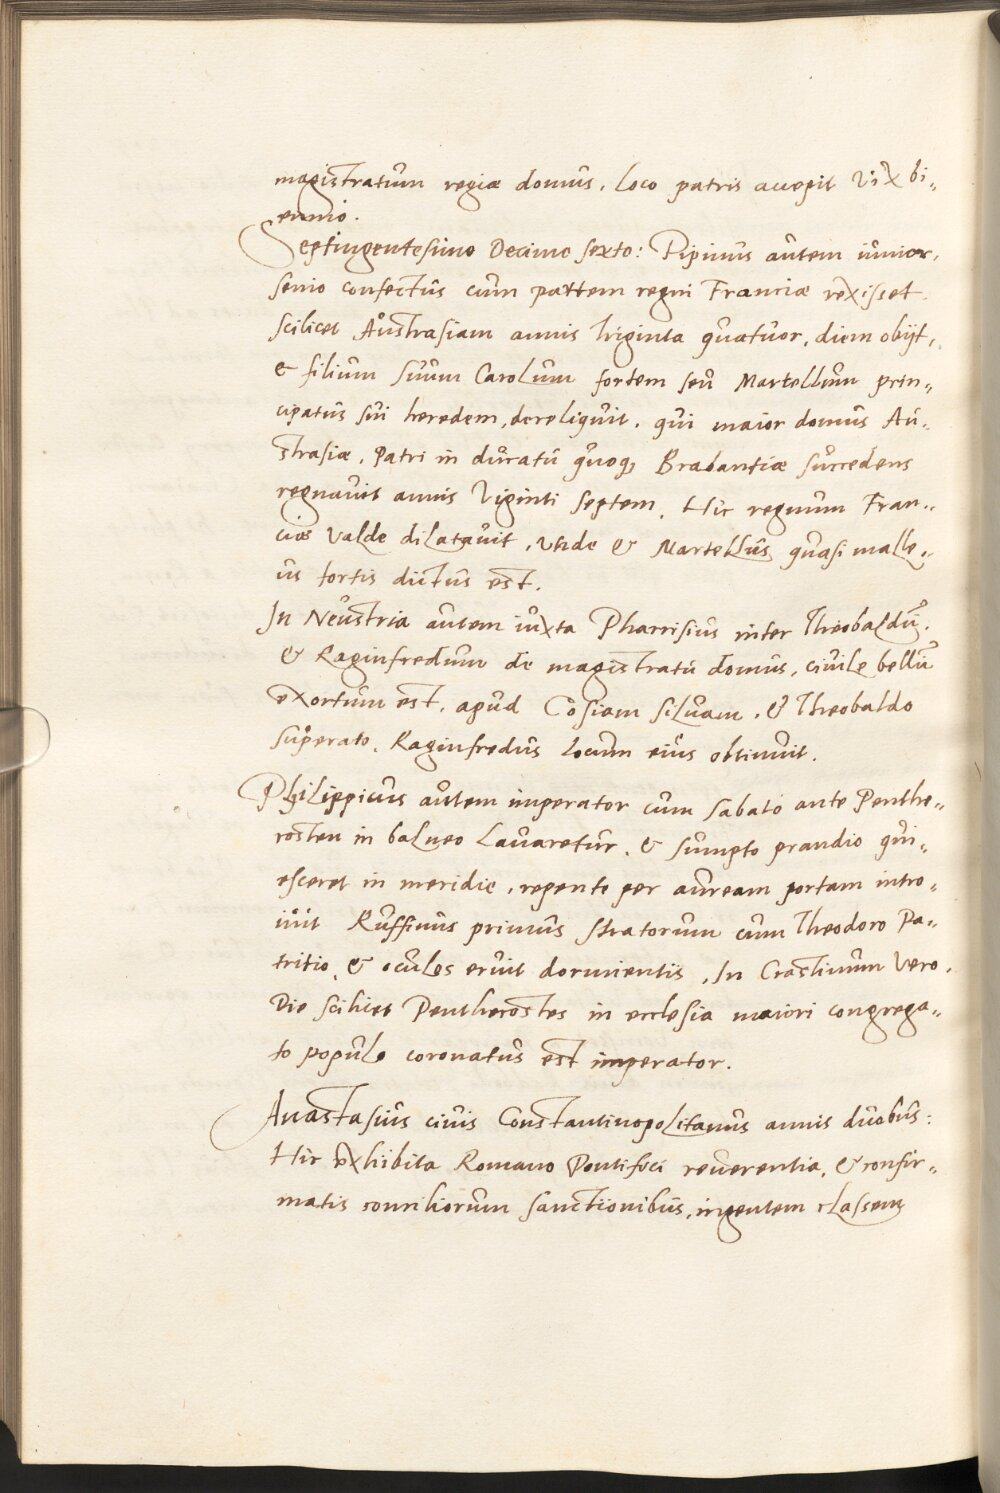 magistratum regiæ domus, loco patris accepit vix bi„
ennio.
Septingentesimo Decimo sexto: Pipinus autem iunior,
senio confectus cum partem regni Franciæ rexisset
scilicet Austrasiam annis triginta quatuor, diem obijt,
& filium suum Carolum fortem seu Martellum prin„
cipatus sui heredem, dereliquit, qui maior domus Au„
strasiæ, Patri in ducatu quoq, Brabantiæ succedens
regnavit annis viginti septem, Hic regnum Fran„
ciæ valde dilatavit, unde & Martellus quasi malle„
us fortis dictus est.
In Neustria autem iuxta Pharrisius inter Theobaldũ,
& Raginfredum de magistratu domus, civile bellũ
exortum est, apud Cosiam silvam, & Theobaldo
superato, Raginfredus locum eius obtinuit.
Philippicus autem imperator cum sabato ante Penthe„
costen in balneo lavaretur, & sumpto prandio qui„
esceret in meridie, repente per auream portam intro„
ivit Ruffinus primus stratorum cum Theodoro Pa„
tritio, & oculos eruit dormientis, In Crastinum vero,
Die scilicet Penthecostes in ecclesia maiori congrega„
to populo coronatus est imperator.
Anastasius civis Constantinopolitanus annis duobus:
Hic exhibita Romano Pontifici reverentia, & confir„
matis conciliorum sanctionibus, ingentem classem